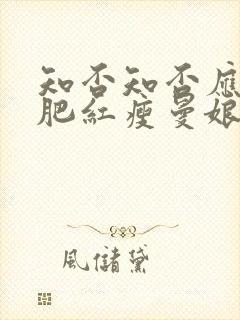 知否知否應
肥紅瘦曼娘
風儲黛